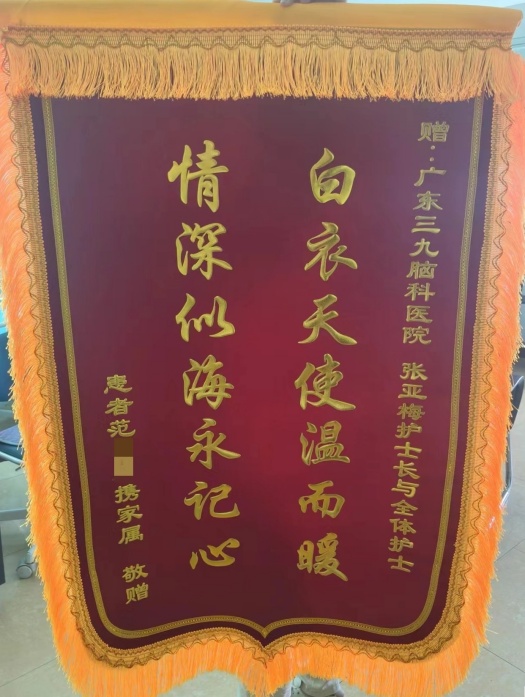 赠：广东三九脑科医院 张亚梅护士长与全体护士
白衣天使温而暖
情深似海永记心
患者范 携家属 敬赠